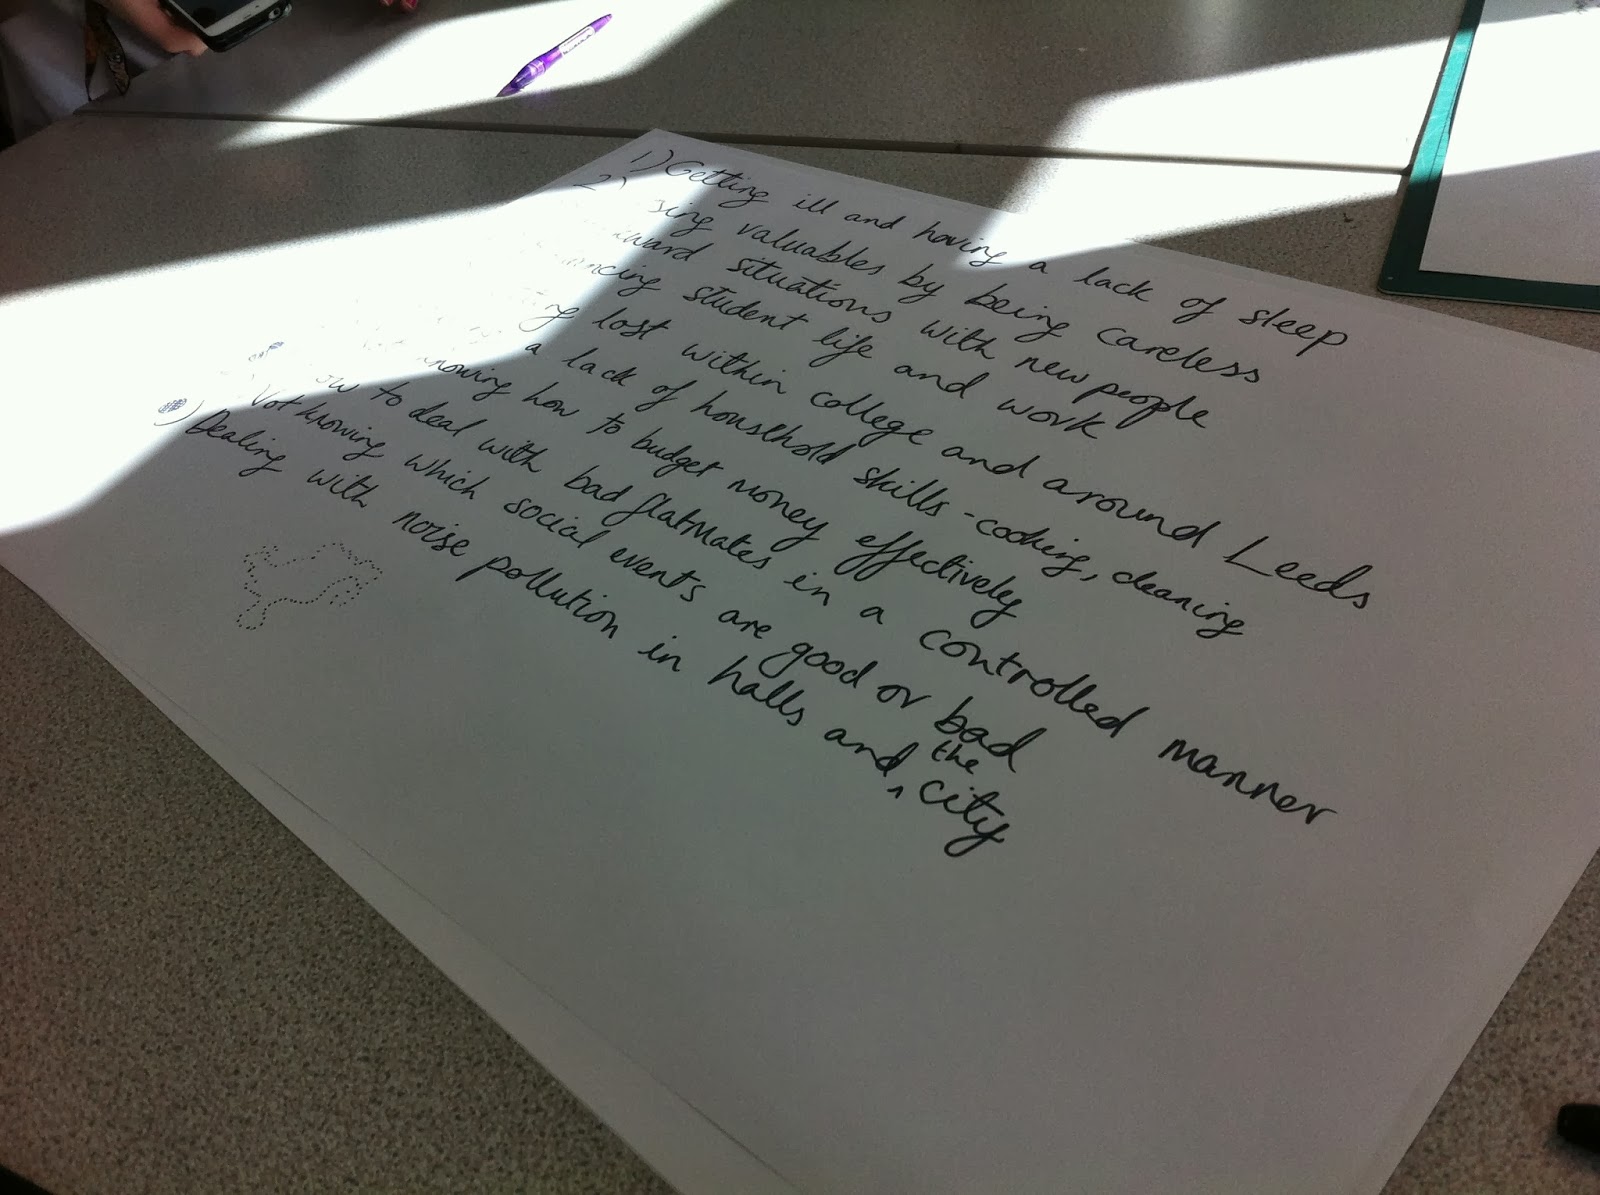 1) Getting ill and having a lack of sleep
2) sing valuables by being careless
situations with new people
ncing student life and work
ng lost within college and around Leeds
a lack of household skills - cooking, cleaning
knowing how to budget money effectively
how to deal with bad flatmates in a controlled manner
Not knowing which social events are good or bad
) Dealing with noise pollution in halls and the city